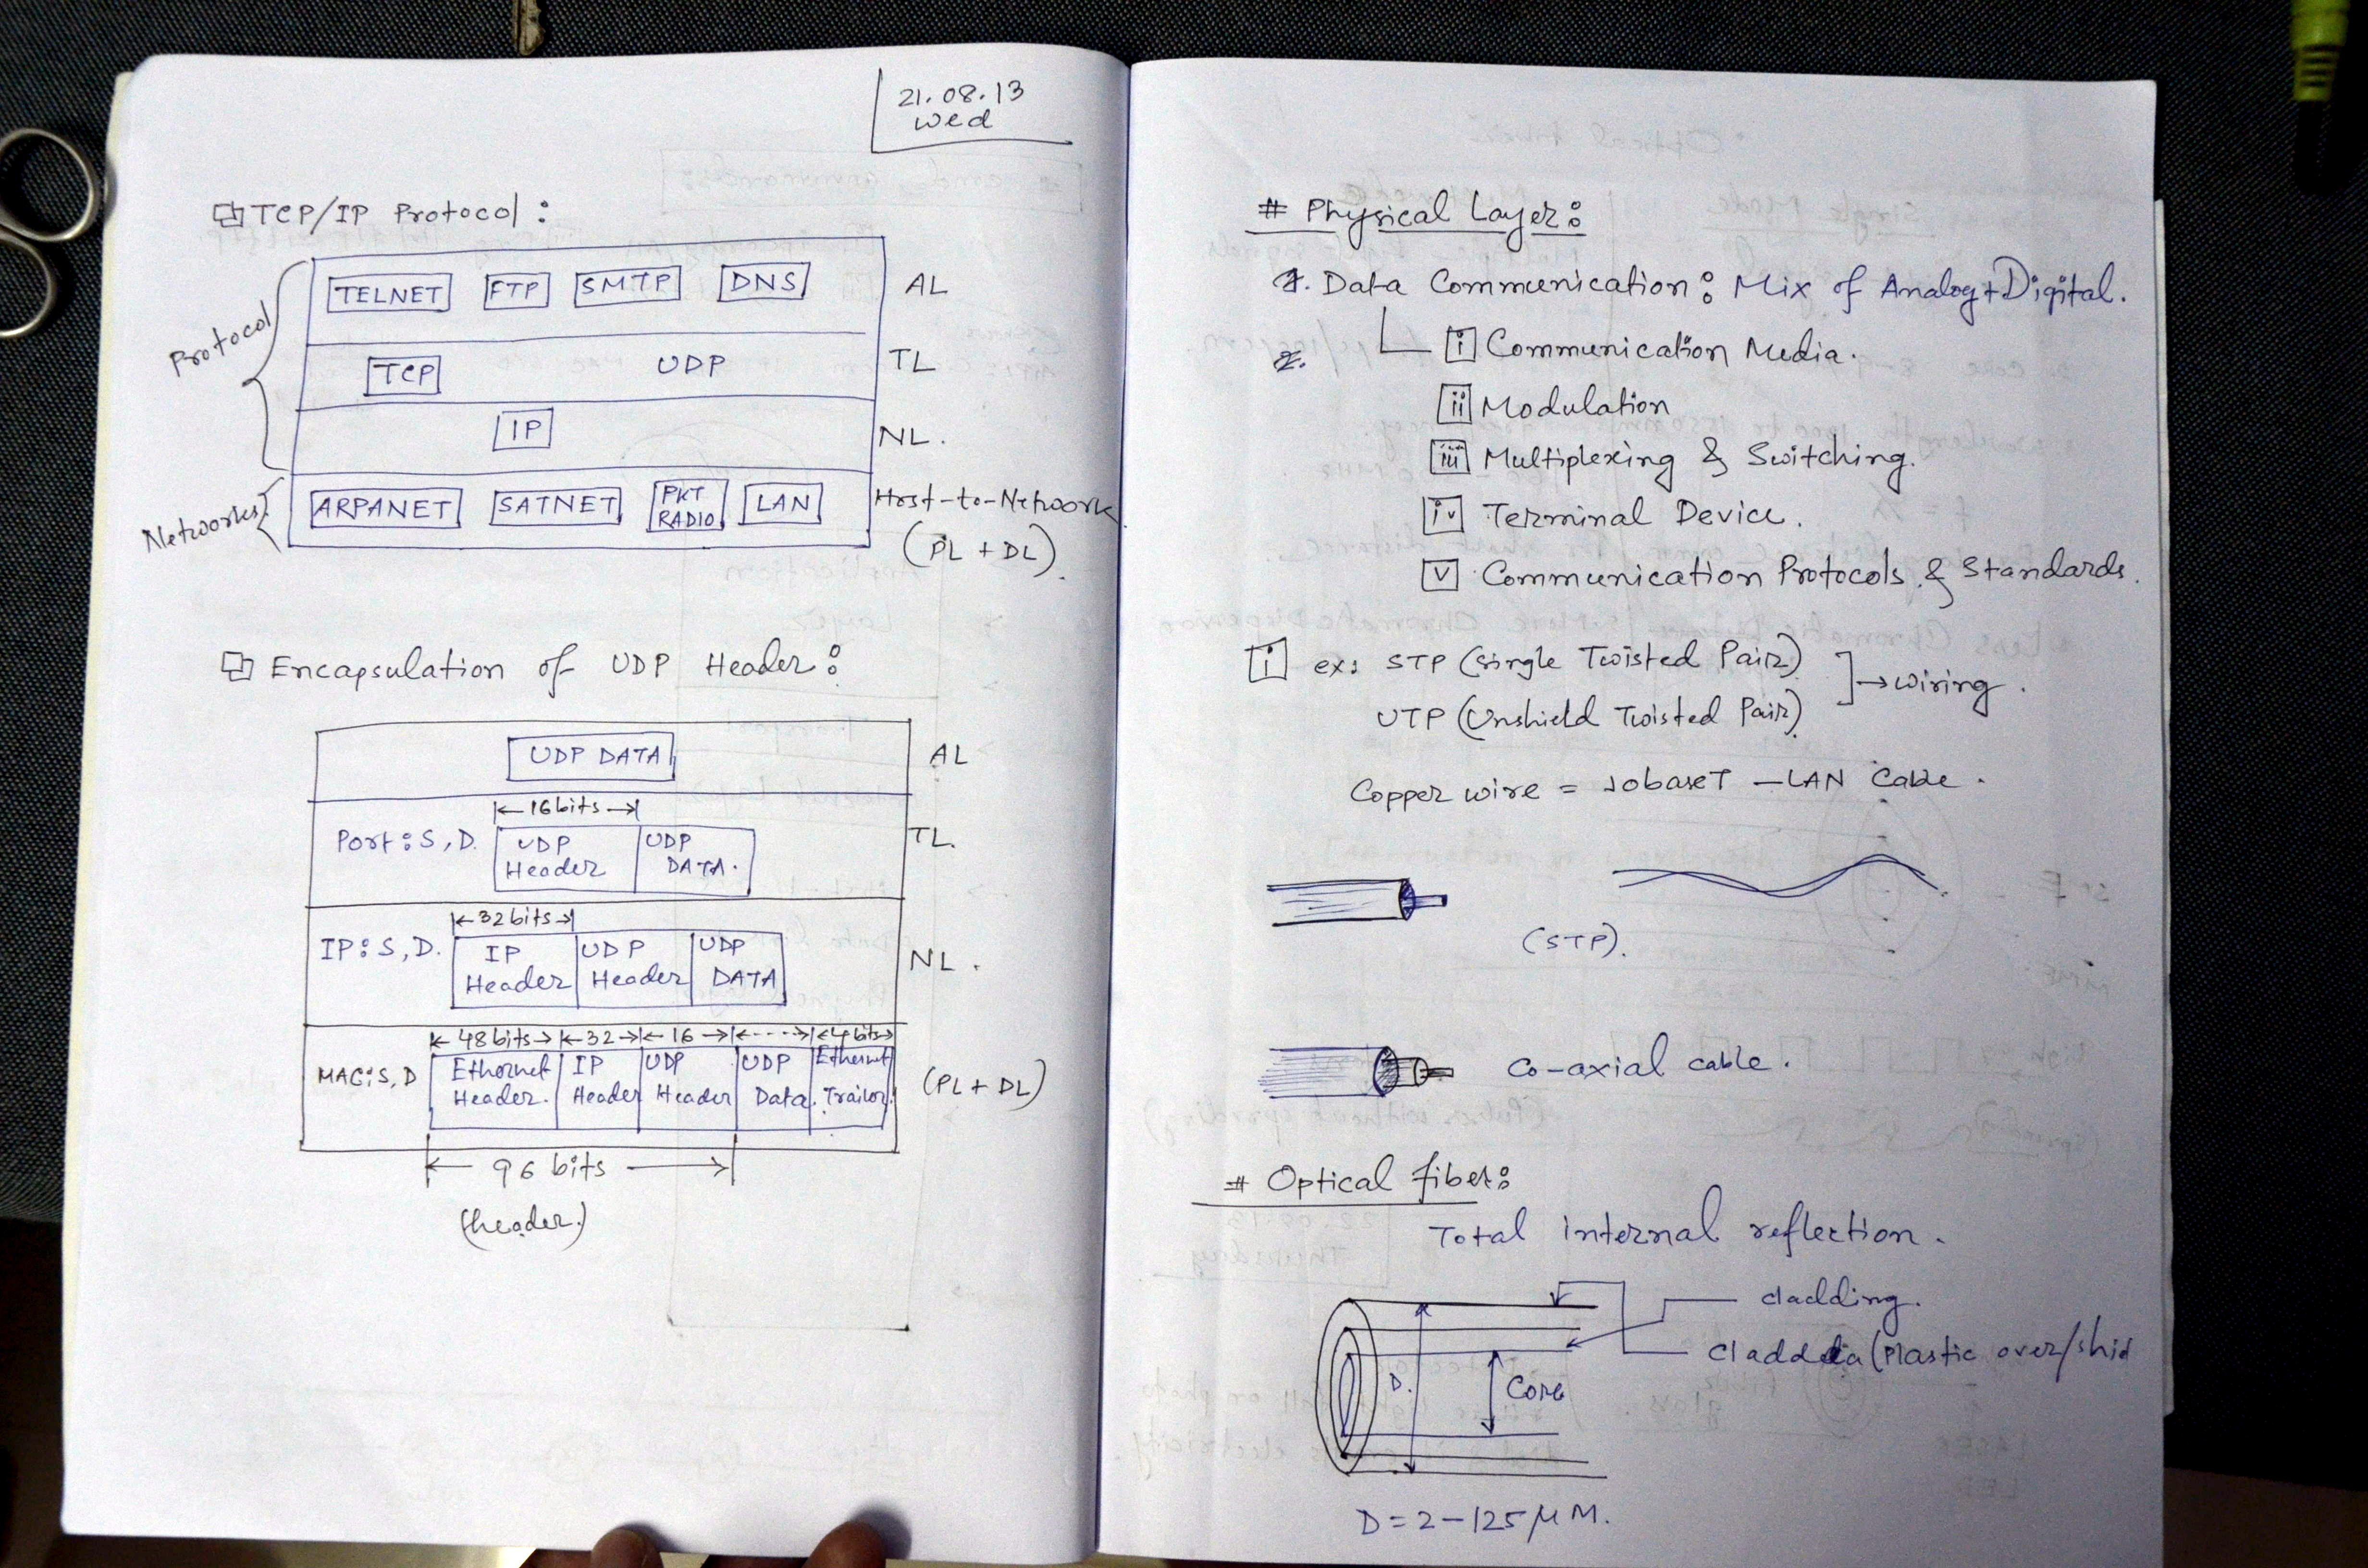 21.08.13
Wed
TCP/IP Protocol:
Protocol
TELNET FTP SMTP DNS AL
TCP UDP TL
IP NL.
Networks
ARPANET SATNET PKT RADIO LAN Host-to-Network
(PL + DL).
Encapsulation of UDP Header:
UDP DATA AL
16bits
Port: S, D. UDP Header UDP DATA. TL.
32bits
IP: S, D. IP Header UDP Header UDP DATA NL.
48bits 32 16 ---- 4bits
MAC: S, D Ethernet Header. IP Header UDP Header UDP Data. Ethernet Trailor. (PL + DL)
96 bits
(header.)
# Physical Layer:
1. Data Communication: Mix of Analog + Digital.
2. i Communication Media.
ii Modulation
iii Multiplexing & Switching.
iv Terminal Device.
v Communication Protocols & Standards.
i ex: STP (Single Twisted Pair)
UTP (Unshield Twisted Pair)
→ wiring.
Copper wire = 10baseT – LAN Cable.
(STP).
Co-axial cable.
# Optical fiber:
Total internal reflection.
cladding.
(Plastic over/
D. Core
D = 2 – 125 μM.